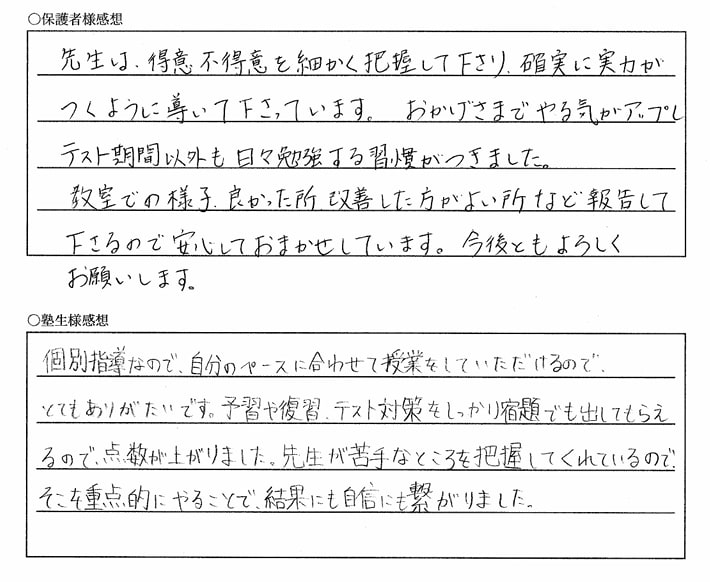 ○保護者様感想
先生は、得意不得意を細かく把握して下さり、確実に実力が
つくように導いて下さっています。 おかげさまでやる気がアップし
テスト期間以外も日々勉強する習慣がつきました。
教室での様子、良かった所、改善した方がよい所など報告して
下さるので安心しておまかせしています。今後ともよろしく
お願いします。
○塾生様感想
個別指導なので、自分のペースに合わせて授業をしていただけるので、
とてもありがたいです。予習や復習、テスト対策をしっかり宿題でも出してもらえ
るので、点数が上がりました。先生が苦手なところを把握してくれているので、
そこを重点的にやることで、結果にも自信にも繋がりました。